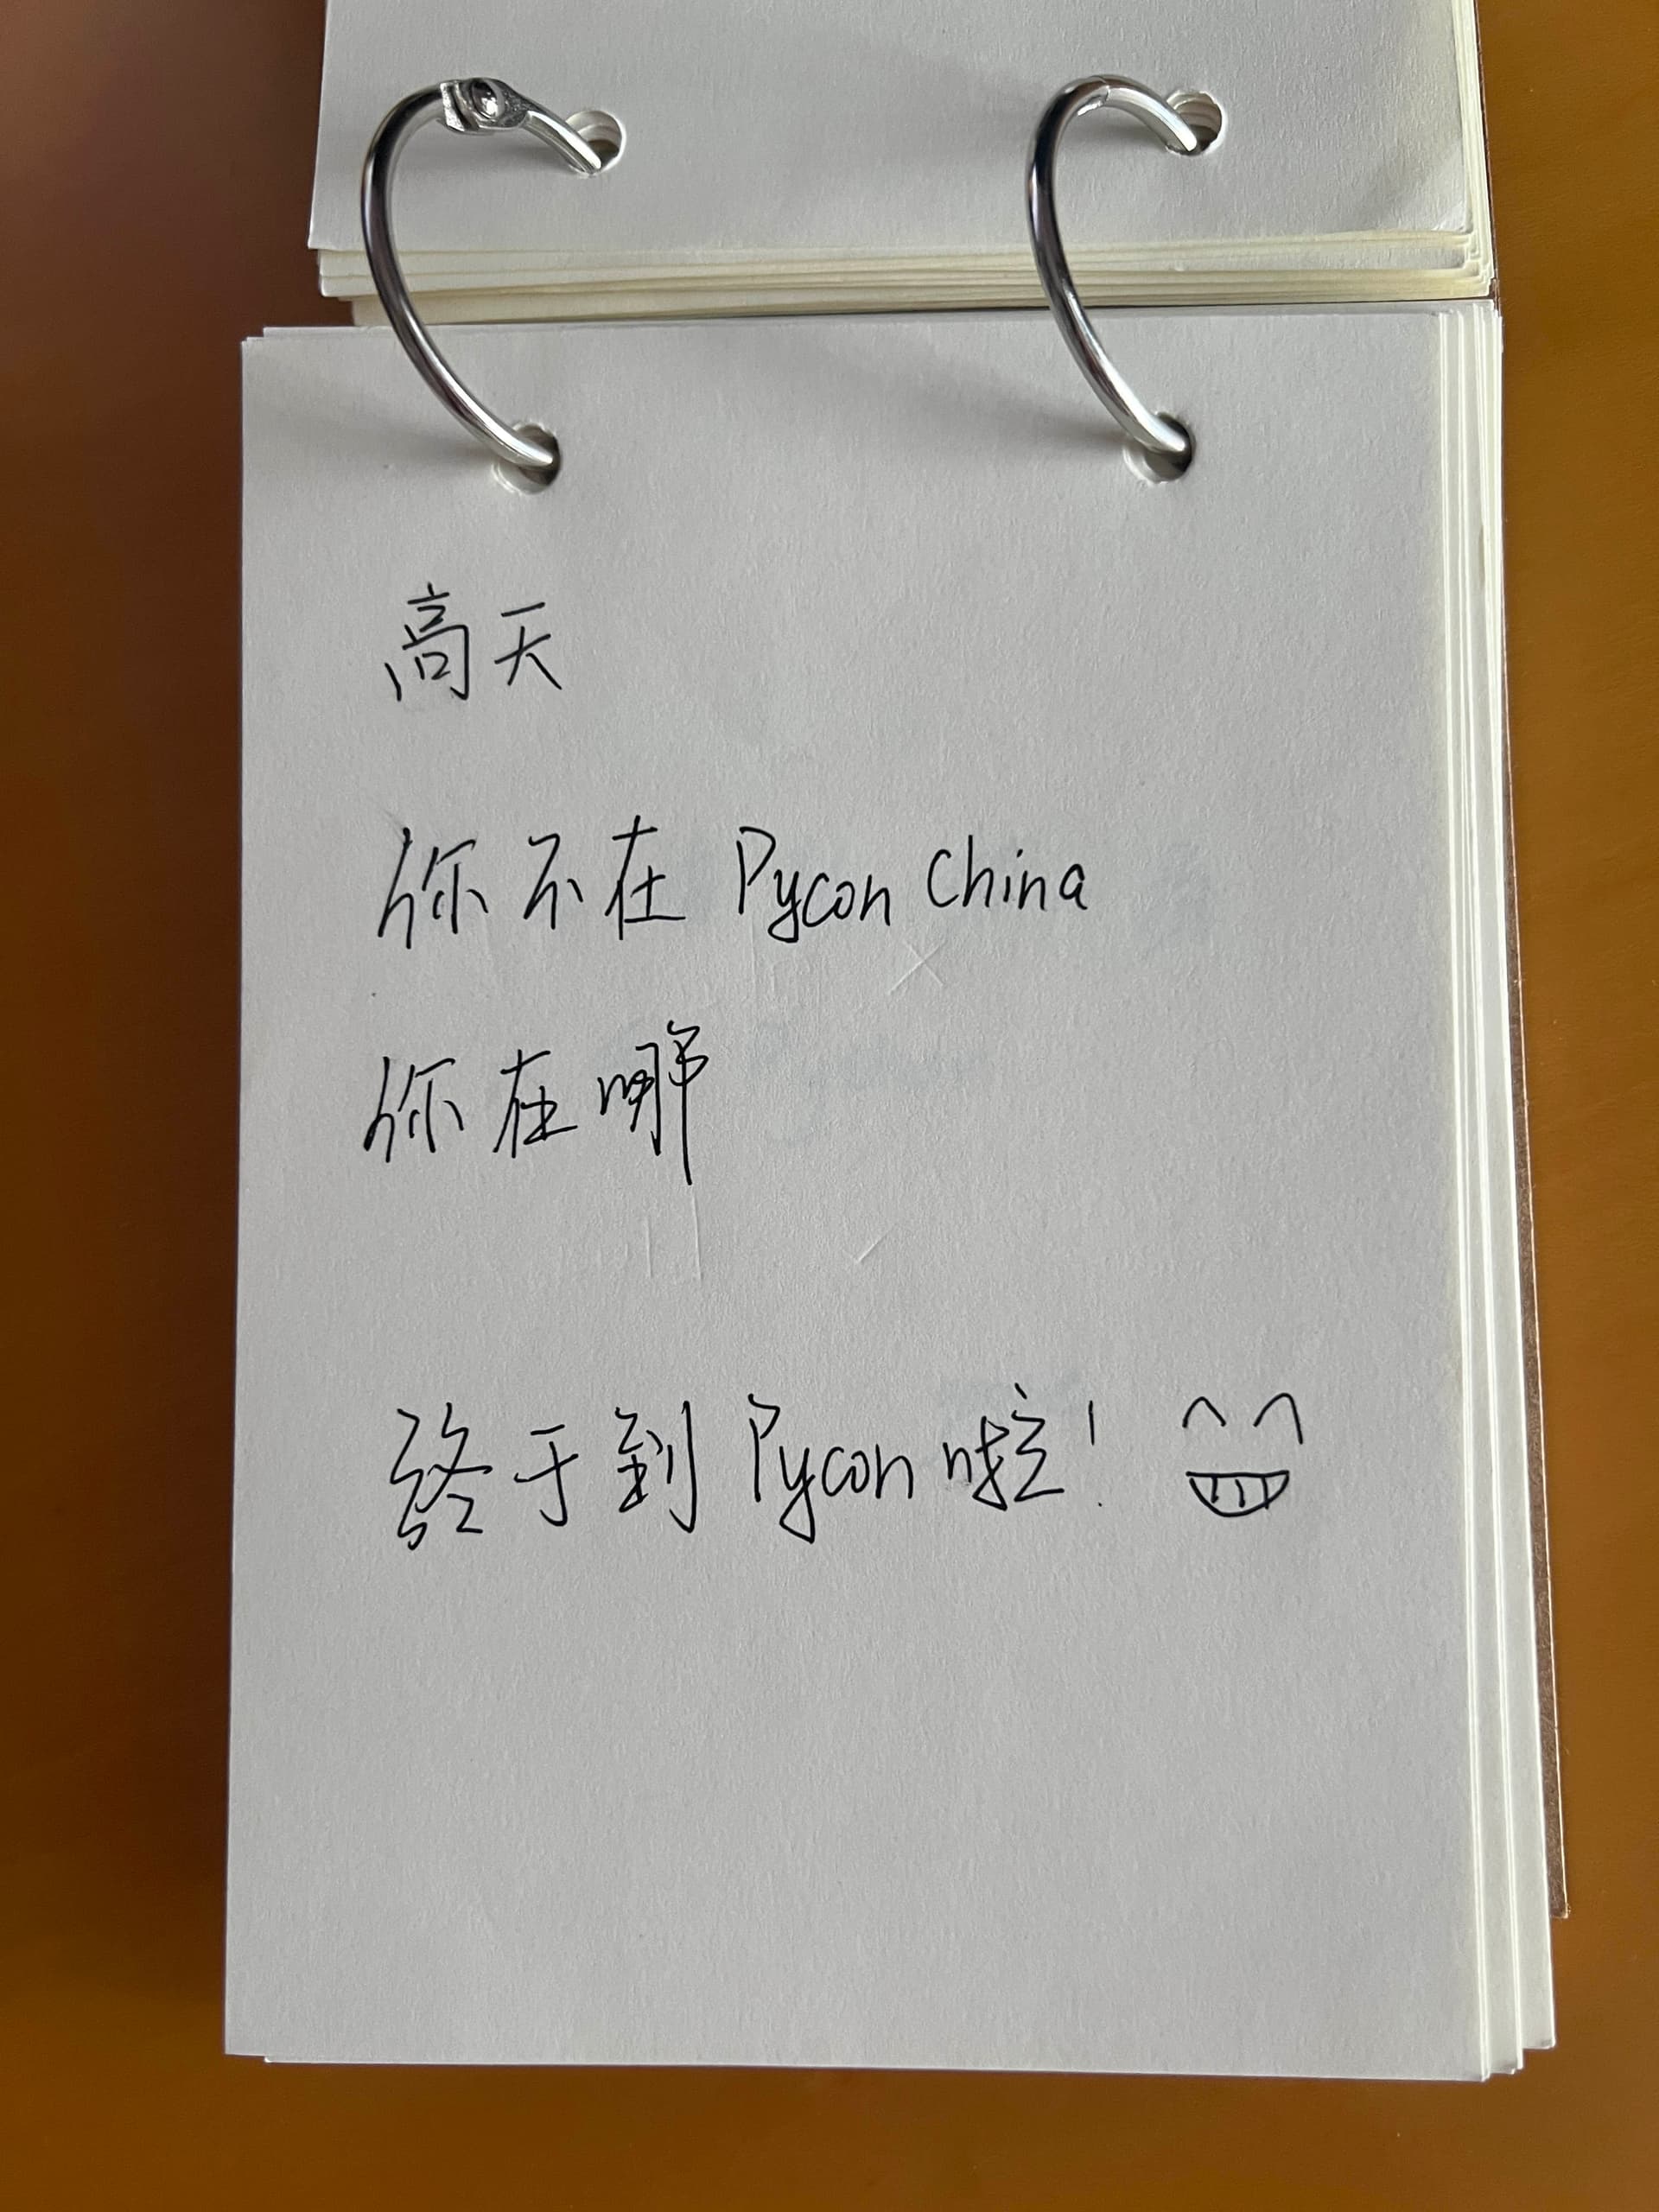 高天
你不在 Pycon China
你在哪
终于到 Pycon 啦!